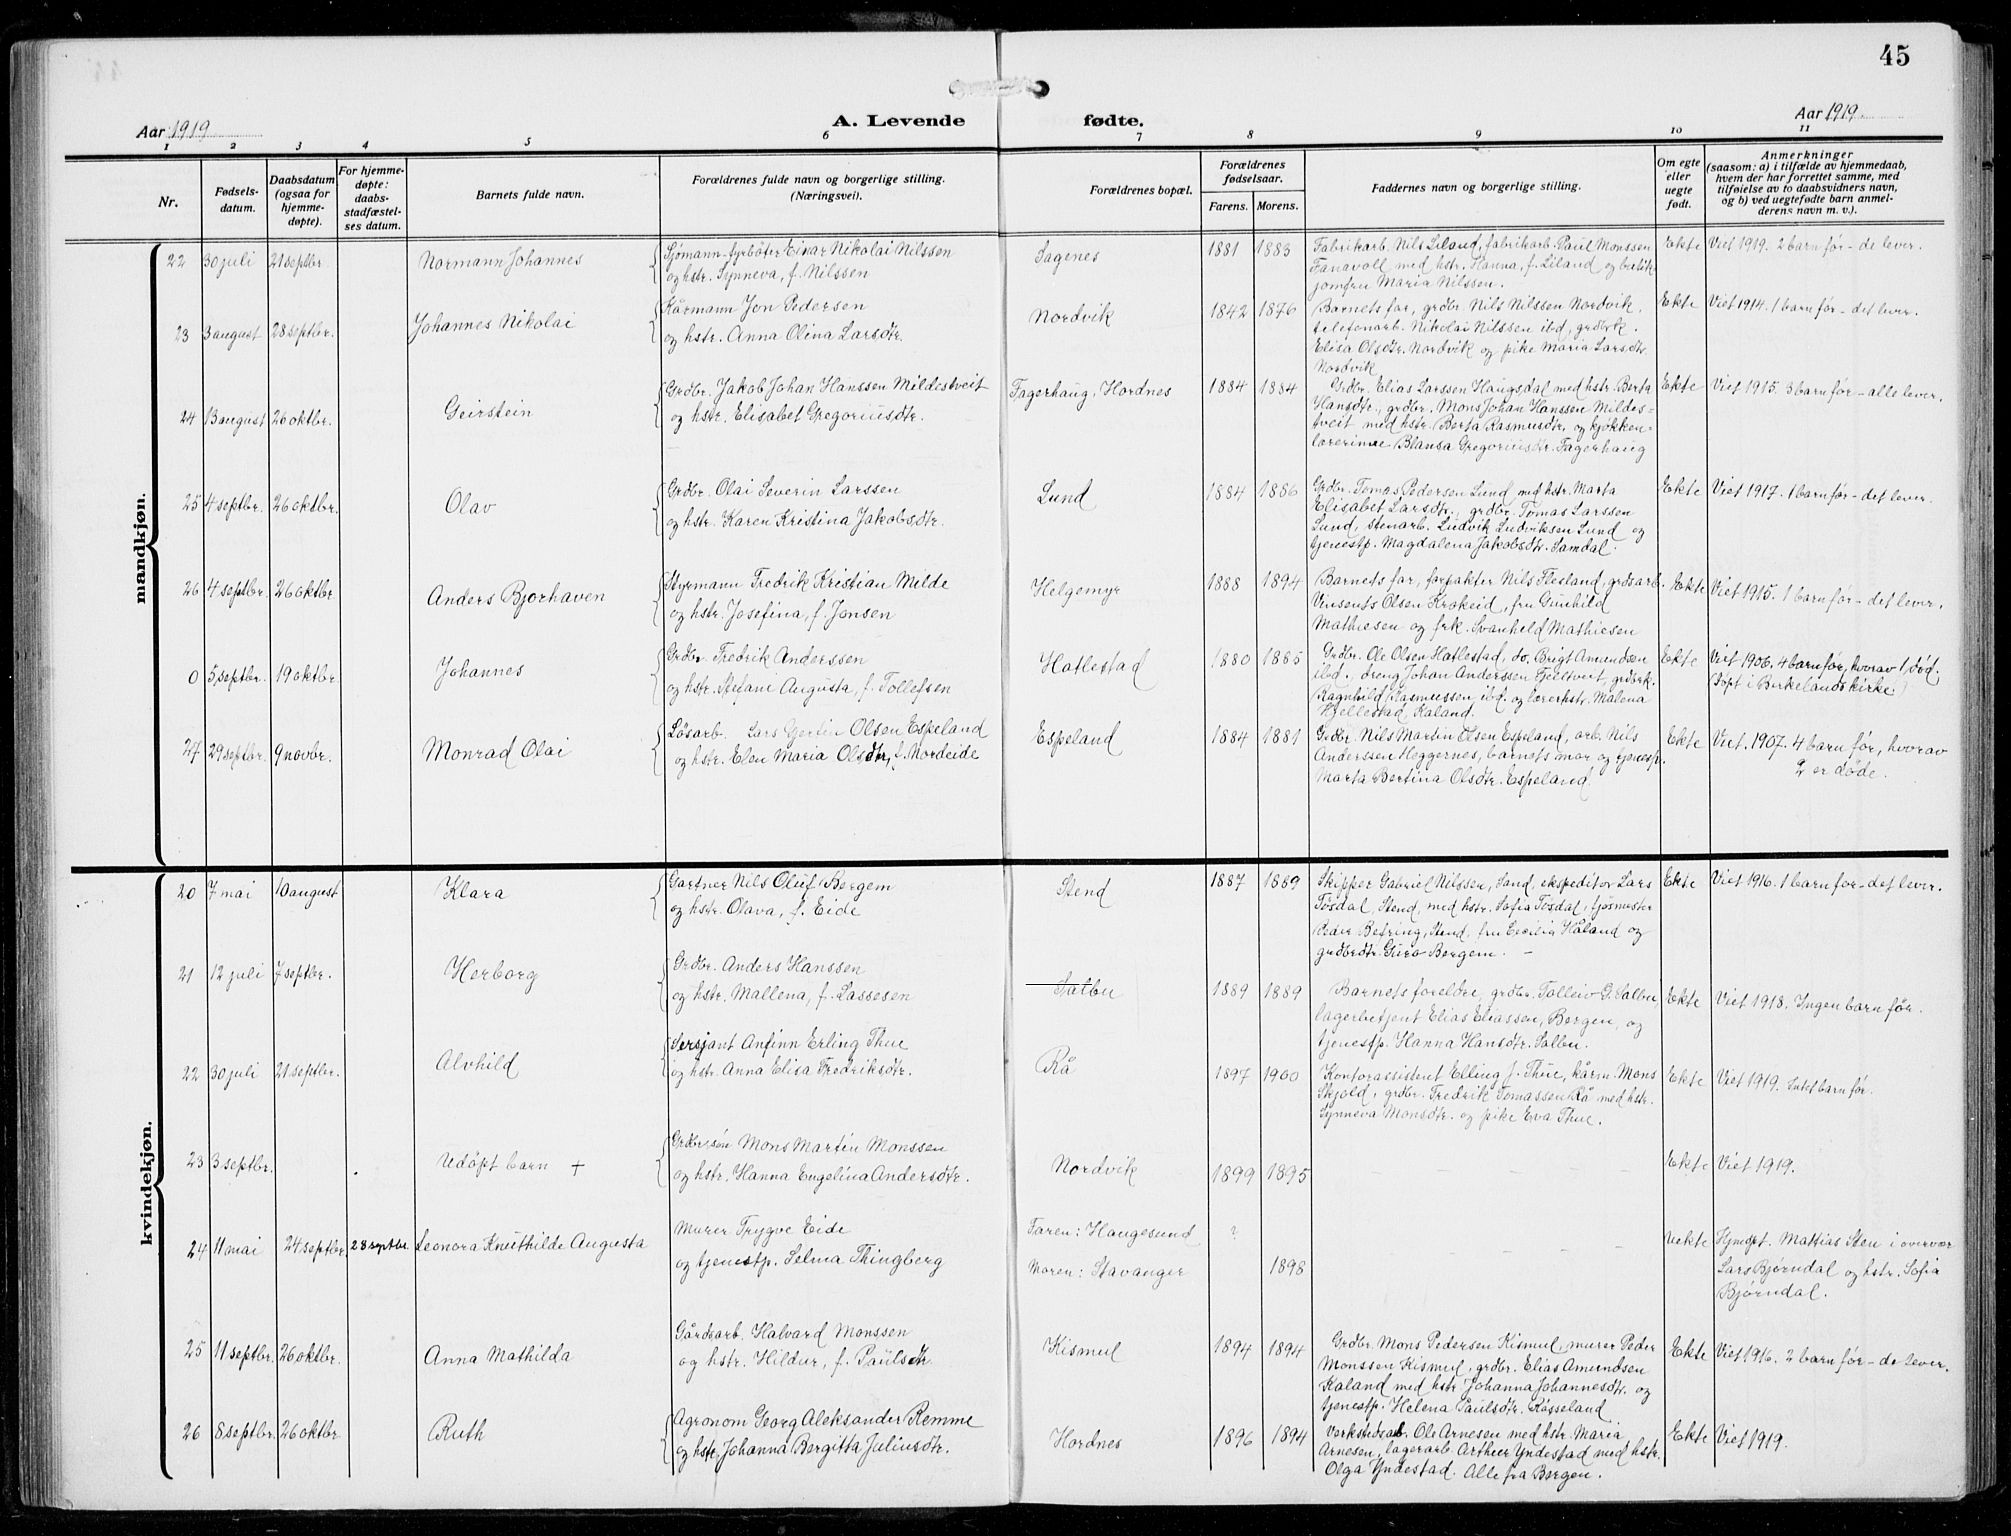 45
Aar 1919
A. Levende fødte.
Aar 1919
1 2 3 4 5 6 7 8 9 10 11
Nr.
Fødsels-
datum.
Daabsdatum
(ogsaa for
hjemme-
døpte).
For hjemme-
døpte:
daabs-
stadfæstel-
ses datum.
Barnets fulde navn.
Forældrenes fulde navn og borgerlige stilling.
(Næringsvei).
Forældrenes bopæl.
Forældrenes
fødselsaar.
Farens. Morens.
Faddernes navn og borgerlige stilling.
Om egte
eller
uegte
født.
Anmerkninger
(saasom: a) i tilfælde av hjemmedaab,
hvem der har forrettet samme, med
tilføielse av to daabsvidners navn,
og b) ved uegtefødte barn anmel-
derens navn m. v.).
mandkjøn.
22 30 juli 21 septbr. Normann Johannes
Sjømann-fyrbøter Einar Nikolai Nilssen
og hstr. Synneva, f. Nilssen
Sagenes 1881 1883
Fabrikarb. Nils Liland, fabrikarb. Paul Monssen
Fanavoll med hstr. Hanna, f. Liland og butik-
jomfru Maria Nilssen.
Ekte Viet 1919. 2 barn før - de lever.
23 3 august 28 septbr. Johannes Nikolai
Kårmann Jon Pedersen
og hstr. Anna Olina Larsdtr.
Nordvik 1842 1876
Barnets far, grdbr. Nils Nilssen Nordvik,
telefonarb. Nikolai Nilssen ibd, grdbrk.
Elisa Olsdtr. Nordvik og pike Maria Larsdtr.
Nordvik
Ekte Viet 1914. 1 barn før - det lever.
24 13 august 26 oktbr. Geirstein
Grdbr. Jakob Johan Hanssen Mildestveit
og hstr. Elisabet Gregoriusdtr.
Fagerhaug, Hordnes 1884 1884
Grdbr. Elias Larssen Haugsdal med hstr. Berta
Hansdtr., grdbr. Mons Johan Hanssen Mildes-
tveit med hstr. Berta Rasmusdtr. og kjøkken-
lærerinne Blansa Gregoriusdtr. Fagerhaug
Ekte Viet 1915. 3 barn før - alle lever.
25 4 septbr. 26 oktbr. Olav
Grdbr. Olai Severin Larssen
og hstr. Karen Kristina Jakobsdtr.
Lund 1884 1886
Grdbr. Tomas Pedersen Lund med hstr. Marta
Elisabet Larsdtr., grdbr. Tomas Larssen
Lund, stenarb. Ludvik Ludviksen Lund og
tjenestp. Magdalena Jakobsdtr. Samdal.
Ekte Viet 1917. 1 barn før - det lever.
26 4 septbr. 26 oktbr. Anders Bjorhaven
Styrmann Fredrik Kristian Milde
og hstr. Josefina, f. Jonsen
Helgemyr 1888 1894
Barnets far, forpakter Nils Flesland, grdsarb.
Vinsents Olsen Krokeid, fru Gunhild
Mathiesen og frk. Svanheld Mathiesen
Ekte Viet 1915. 1 barn før - det lever.
0 5 septbr. 19 oktbr. Johannes
Grdbr. Fredrik Anderssen
og hstr. Stefani Augusta, f. Tollefsen
Hatlestad 1880 1885
Grdbr. Ole Olsen Hatlestad, do. Brigt Amundsen
ibd., dreng Johan Anderssen Fjellstveit, grdbrk.
Ragnhild Rasmussen, ibd. og lærerhstr. Malena
Hjellestad, Kaland.
Ekte Viet 1906. 4 barn før, hvorav 1 død.
(Døpt i Birkelands kirke.)
27 29 septbr. 9 novbr. Monrad Olai
Løsarb. Lars Gertin Olsen Espeland
og hstr. Elen Maria Olsdtr., f. Nordeide
Espeland 1884 1881
Grdbr. Nils Martin Olsen Espeland, arb. Nils
Anderssen Heggernes, barnets mor og tjenestp.
Marta Bertina Olsdtr. Espeland.
Ekte Viet. 1907. 4 barn før, hvorav
2 er døde.
kvindekjøn.
20 7 mai 10 august Klara
Gartner Nils Oluf Bergem
og hstr. Olava, f. Eide
Stend 1887 1889
Skipper Gabriel Nilssen, Sand, ekspeditor Lars
Tøsdal, Stend, med hstr. Sofia Tøsdal, fjøsmester
Peder Befring, Stend, fru Cecilia Håland og
grdbrdtr. Guro Bergem. -
Ekte Viet 1916. 1 barn før - det lever.
21 12 juli 7 septbr. Herborg
Grdbr. Anders Hanssen
og hstr. Mallena, f. Lassesen
Salbu 1889 1889
Barnets foreldre, grdbr. Tolleiv G. Salbu,
lagerbetjent Elias Eliassen, Bergen, og
tjenestp. Hanna Hansdtr. Salbu.
Ekte Viet 1918. Ingen barn før.
22 30 juli 21 septbr. Alvhild
Sersjant Anfinn Erling Thue
og hstr. Anna Elisa Fredriksdtr.
Rå 1897 1900
Kontorassistent Elling J. Thue, kårm. Mons
Skjold, grdbr. Fredrik Tomassen Rå med hstr.
Synneva Monsdtr. og pike Eva Thue.
Ekte Viet 1919. Intet barn før.
23 3 septbr. Udøpt barn +
Grdbr.søn Mons Martin Monssen
og hstr. Hanna Engelina Andersdtr.
Nordvik 1899 1895
- - - - -
Ekte Viet 1919.
24 11 mai 24 septbr. 28 septbr. Leonora Knuthilde Augusta
Murer Trygve Eide
og tjenestp. Selma Thingberg
Faren: Haugesund ?
Moren: Stavanger 1898
- - - - -
Uekte Hjmdpt. Mattias Sten i overvær
Lars Bjørndal og hstr. Sofia
Bjørndal.
25 11 septbr. 26 oktbr. Anna Mathilda
Gårdsarb. Halvard Monssen
og hstr. Hildur, f. Paulsdtr.
Kismul 1894 1894
Grdbr. Mons Pedersen Kismul, murer Peder
Monssen Kismul, grdbr. Elias Amundsen
Kaland med hstr. Johanna Johannesdtr. og
tjenestp. Helena Paulsdtr. Røsseland
Ekte Viet 1916. 2 barn før - de lever.
26 8 septbr. 26 oktbr Ruth
Agronom Georg Aleksander Remme
og hstr. Johanna Bergitta Juliusdtr.
Hordnes 1896 1894
Verkstedsarb. Ole Arnesen med hstr. Maria
Arnesen, lagerarb. Arthur Yndestad med hstr.
Olga Yndestad. Alle fra Bergen.
Ekte Viet 1919.